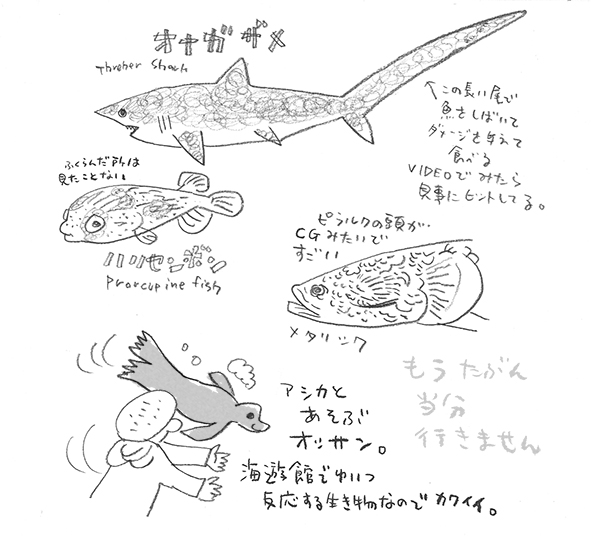 オナガザメ
Throher Shark
↑この長い尾で
魚をしばいて
ダメージを与えて
食べる
VIDEOでみたら
見事にヒットしてる。
ふくらんだ所は
見たことない
ハリセンボン
Prorcupine fish
ピラルクの頭が
CGみたいで
すごい
メタリック
アシカと
あそぶ
オッサン。
海遊館でゆいつ
反応する生き物なのでカワイイ。
もうたぶん
当分
行きません